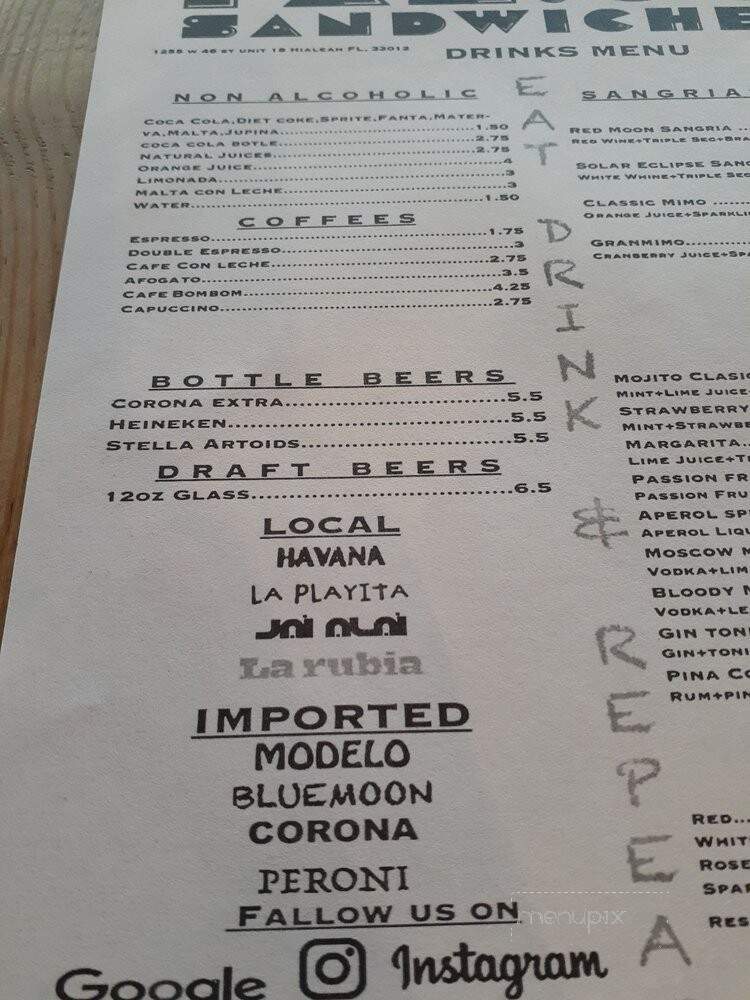 SANDWICHE
1255 W 46 ST UNIT 15 HIALEAH FL, 33012
DRINKS MENU
NON ALCOHOLIC
COCA COLA,DIET COKE,SPRITE,FANTA,MATER-
VA,MALTA,JUPINA....1.50
COCA COLA BOTLE....2.75
NATURAL JUICES....2.75
ORANGE JUICE....4
LIMONADA....3
MALTA CON LECHE....3
WATER....1.50
COFFEES
ESPRESSO....1.75
DOUBLE ESPRESSO....3
CAFE CON LECHE....2.75
AFOGATO....3.5
CAFE BOMBOM....4.25
CAPUCCINO....2.75
BOTTLE BEERS
CORONA EXTRA....5.5
HEINEKEN....5.5
STELLA ARTOIDS....5.5
DRAFT BEERS
12OZ GLASS....6.5
LOCAL
HAVANA
LA PLAYITA
JAI ALAI
La rubia
IMPORTED
MODELO
BLUEMOON
CORONA
PERONI
FALLOW US ON
Google
Instagram
EAT
DRINK
&
REPEA
SANGRIA
RED MOON SANGRIA ...
RED WINE+TRIPLE SEC+BRA
SOLAR ECLIPSE SANG
WHITE WHINE+TRIPLE SEC
CLASSIC MIMO ....
ORANGE JUICE+SPARKLI
GRANMIMO....
CRANBERRY JUICE+SPA
MOJITO CLASIC
MINT+LIME JUICE+
STRAWBERRY
MINT+STRAWBE
MARGARITA...
LIME JUICE+T
PASSION FR
PASSION FRU
APEROL SP
APEROL LIQU
MOSCOW M
VODKA+LIM
BLOODY M
VODKA+LE
GIN TONI
GIN+TONI
PINA CO
RUM+PIN
RED...
WHIT
ROSE
SPAR
RES
menupix